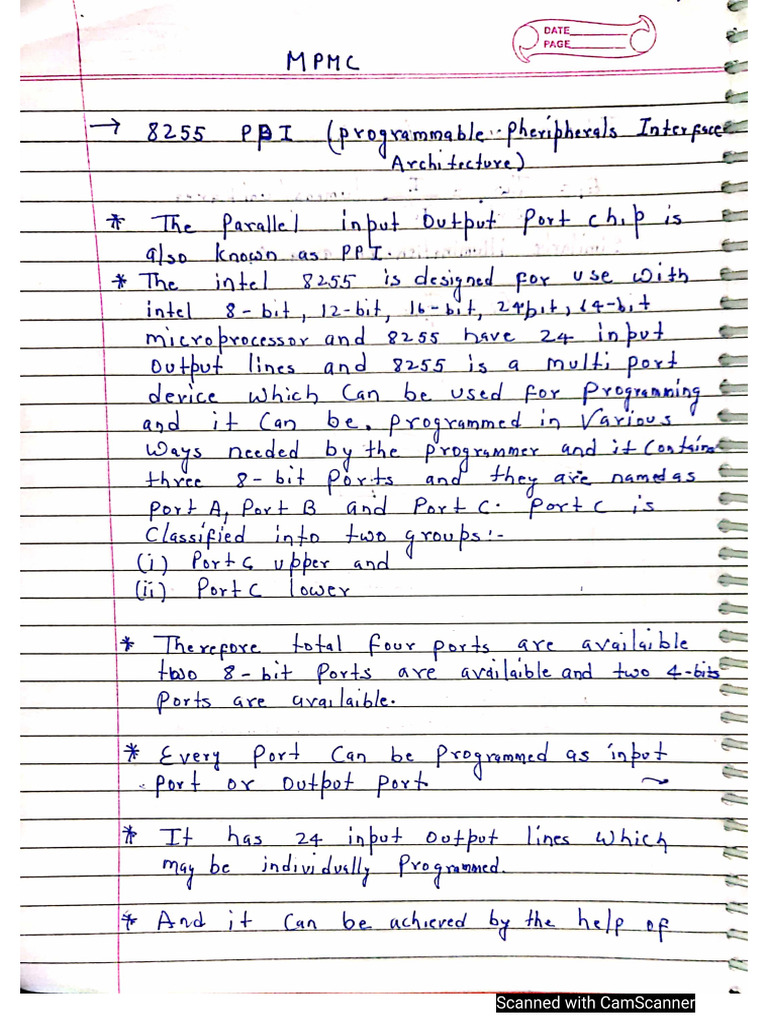 DATE
PAGE
MPMC
→ 8255 PPI (programmable Pheripherals Interface
Architecture)
* The Parallel input Output Port chip is
also known as PPI.
* The intel 8255 is designed for use with
intel 8-bit, 12-bit, 16-bit, 24bit, 64-bit
microprocessor and 8255 have 24 input
Output lines and 8255 is a multi port
device which Can be used for Programming
and it Can be. programmed in Various
Ways needed by the programmer and it Contains
three 8-bit Ports and they are named as
port A, Port B and Port C. Port C is
Classified into two groups:-
(i) Port C upper and
(ii) Port C lower
* Therefore total four ports are availaible
two 8-bit Ports are availaible and two 4-bits
Ports are availaible.
* Every Port Can be Programmed as input
port or Output Port
* It has 24 input output lines which
may be individually Programmed.
* And it Can be achieved by the help of
Scanned with CamScanner